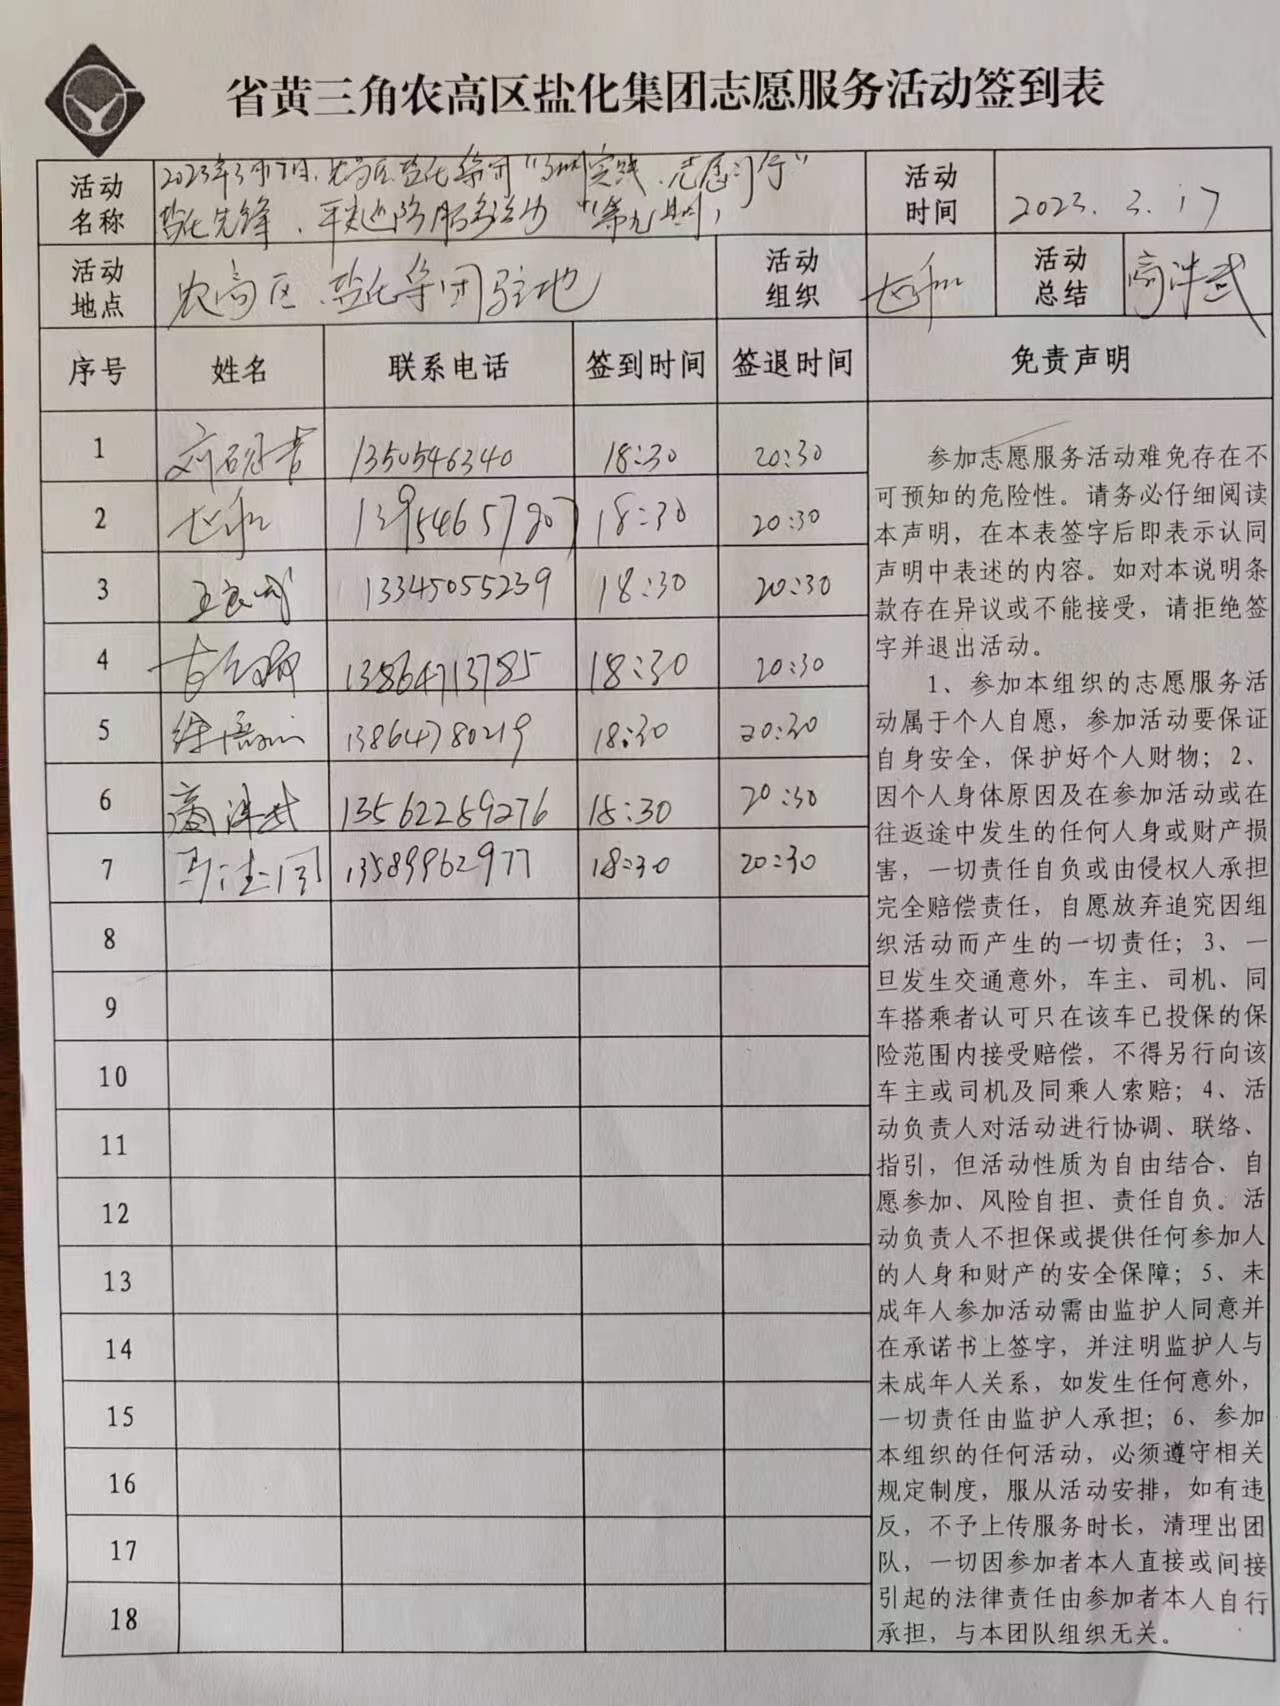 省黄三角农高区盐化集团志愿服务活动签到表
活动名称
2023年3月17日,农高区盐化集团" 实践、志愿 行"
盐化先锋、 服务活动"第九期"
活动时间
2023.3.17
活动地点
农高区、盐化集团驻地
活动组织
活动总结
高洪武
序号 姓名 联系电话 签到时间 签退时间 免责声明
1 1350546340 18:30 20:30
2 18:30 20:30
3 王良武 13345055239 18:30 20:30
4 13864713785 18:30 20:30
5 13864780219 18:30 20:30
6 高洪武 13562259276 18:30 20:30
7 13589962977 18:30 20:30
8
9
10
11
12
13
14
15
16
17
18
参加志愿服务活动难免存在不
可预知的危险性。请务必仔细阅读
本声明，在本表签字后即表示认同
声明中表述的内容。如对本说明条
款存在异议或不能接受，请拒绝签
字并退出活动。
1、参加本组织的志愿服务活
动属于个人自愿，参加活动要保证
自身安全，保护好个人财物；2、
因个人身体原因及在参加活动或在
往返途中发生的任何人身或财产损
害，一切责任自负或由侵权人承担
完全赔偿责任，自愿放弃追究因组
织活动而产生的一切责任；3、一
旦发生交通意外，车主、司机、同
车搭乘者认可只在该车已投保的保
险范围内接受赔偿，不得另行向该
车主或司机及同乘人索赔；4、活
动负责人对活动进行协调、联络、
指引，但活动性质为自由结合、自
愿参加、风险自担、责任自负。活
动负责人不担保或提供任何参加人
的人身和财产的安全保障；5、未
成年人参加活动需由监护人同意并
在承诺书上签字，并注明监护人与
未成年人关系，如发生任何意外，
一切责任由监护人承担；6、参加
本组织的任何活动，必须遵守相关
规定制度，服从活动安排，如有违
反，不予上传服务时长，清理出团
队，一切因参加者本人直接或间接
引起的法律责任由参加者本人自行
承担，与本团队组织无关。